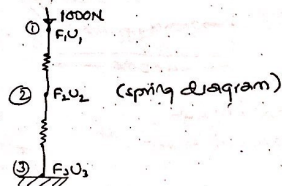 1000N
① F₁U₁
② F₂U₂ (spring diagram)
③ F₃U₃